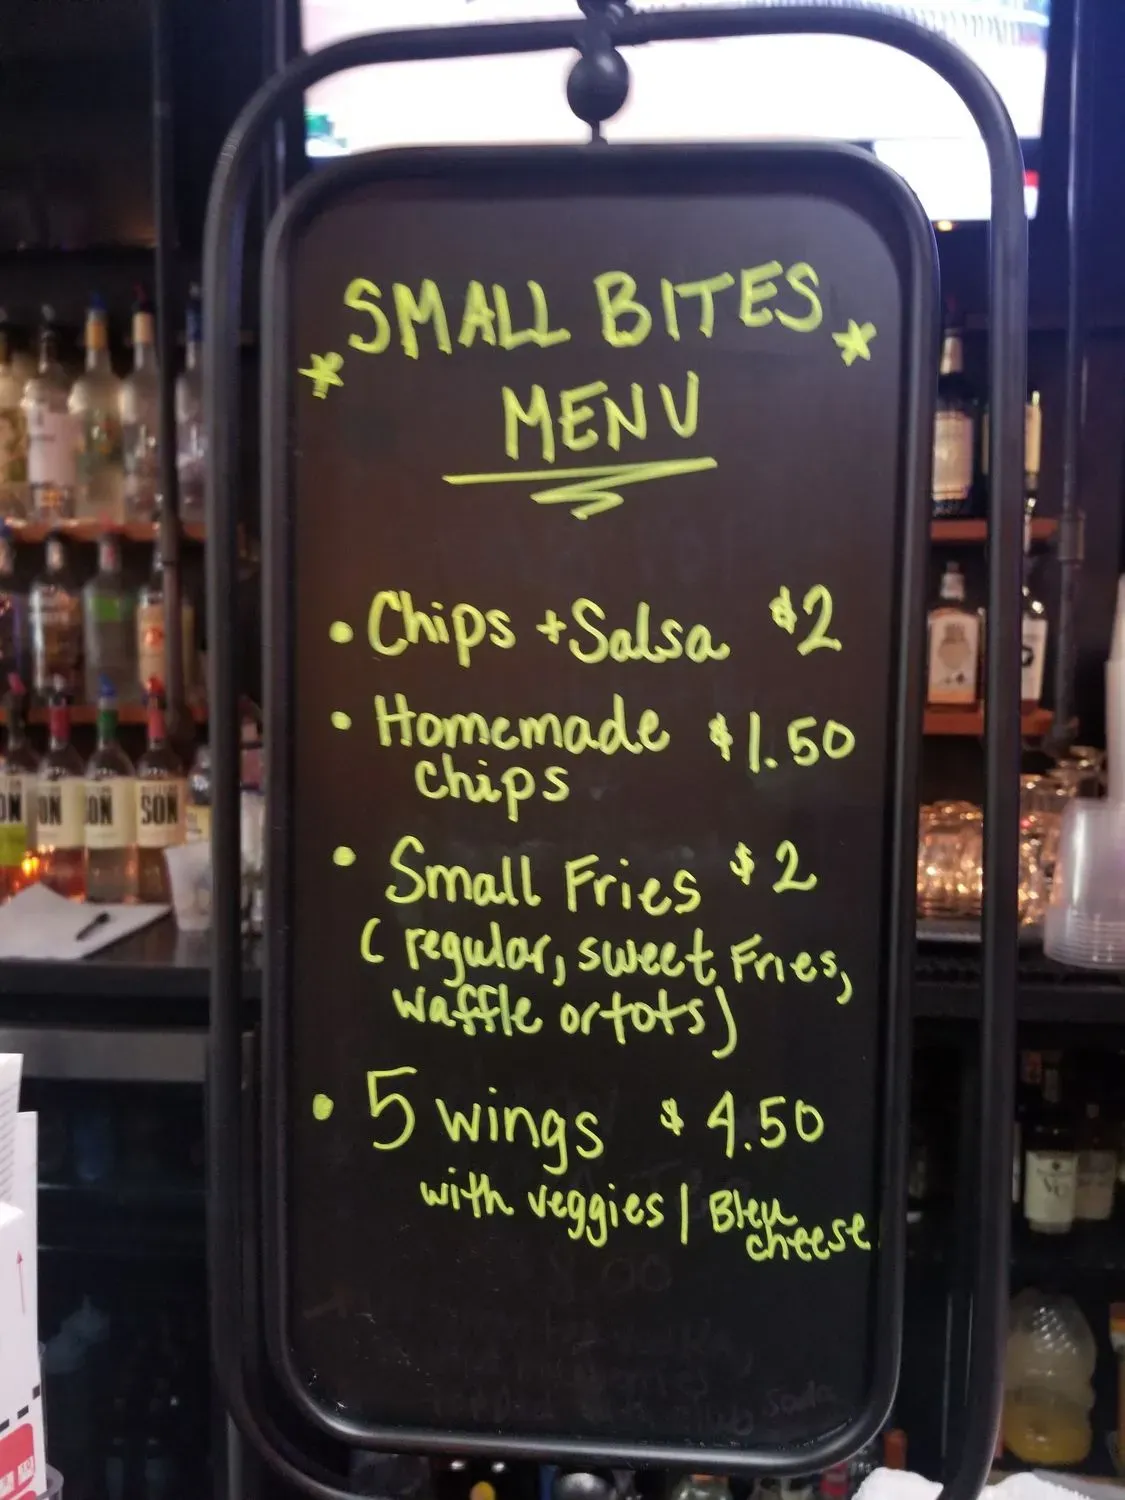 SMALL BITES
MENU
• Chips + Salsa $2
• Homemade $1.50
chips
• Small Fries $2
( regular, sweet Fries,
waffle or tots)
• 5 wings $4.50
with veggies | Bleu
cheese
ON
ON
SON
SON